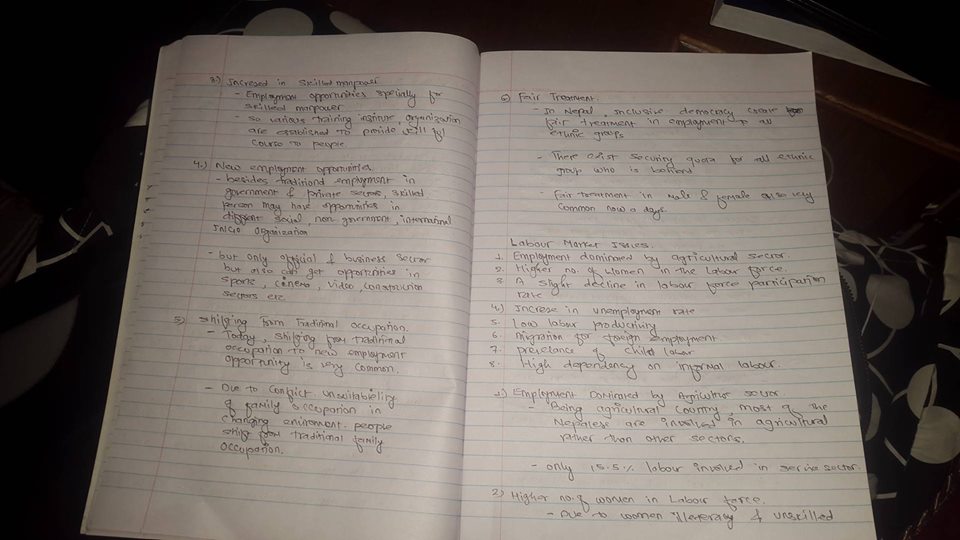 3.) Incresed in skilled manpower
- Employment opportunities specially for
skilled manpower
- so various training , organization
are established to provide
course to people.
4.) New employment opportunities.
- besides traditional employment in
government & private sectors, skilled
person may have opportunities in
different social, non government, international
INGO Organization
- but only official & business sector
but also can get opportunities in
sports, cinema, video, construction
sectors etc
5) Shifting from Traditional occupation.
- Today, shifting from traditional
occupation to new employment
opportunity is very common.
- Due to conflict, unsuitability
of family occupation in
changing environment people
shift from traditional family
occupation.
6) Fair Treatment.
- In Nepal, inclusive democracy create
fair treatment in employment to all
ethnic groups
- There exist security quota for all ethnic
group who is
- Fair treatment in male & female also very
common now a days.
Labour Market Issues.
1. Employment dominated by agricultural sector.
2. Higher no. of women in the labour force.
3. A slight decline in labour force participation
rate
4.) Increse in unemployment rate
5. Low labour productivity
6. Migration for foreign employment
7. of child labour
8. High dependency on informal labour.
1) Employment Dominated by Agricultur sector
- Being agricultural country, most of the
Nepalese are involved in agricultural
rather than other sectors.
- only 15.5% labour involved in service sector.
2) Higher no. of women in Labour force.
- Due to women & unskilled